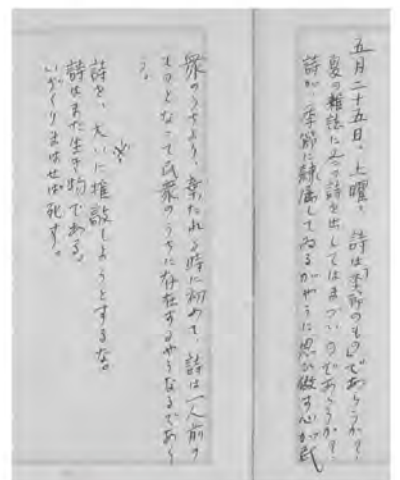 五月二十五日、土曜、詩は季節のものであらうか?
夏の雑誌に冬の詩を出してはまづいのであらうか?
詩が、季節に隷属してゐるがやうに思ひ做す心が民
衆のうちより、棄たれる時に初めて、詩は一人前の
ものとなって民衆のうちに存在するやうなるであら
う。
詩を、大いに推敲しようとするな。
詩はまた生き物である。
いぢくりまはせば死す。